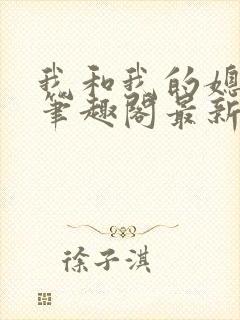 我和我的媳
笔趣阁最新
徐子淇